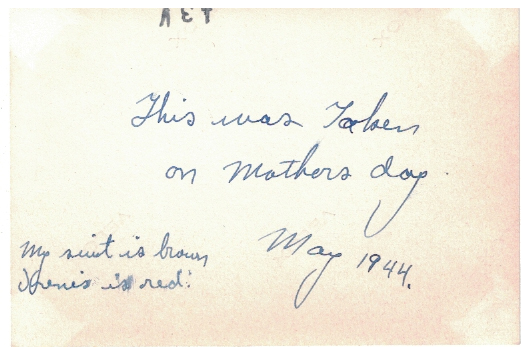 This was Taken
on Mothers day.
May 1944.
My suit is brown
Irenes is red.